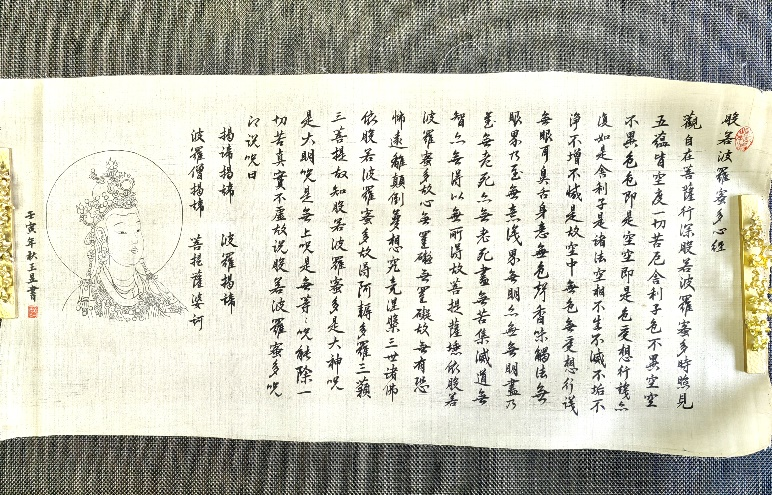 般若波羅蜜多心經
觀自在菩薩行深般若波羅蜜多時照見
五蕴皆空度一切苦厄舍利子色不異空空
不異色色即是空空即是色受想行識亦
復如是舍利子是諸法空相不生不滅不垢不
淨不增不減是故空中無色無受想行識
無眼耳鼻舌身意無色聲香味觸法無
眼界乃至無意識界無無明亦無無明盡乃
至無老死亦無老死盡無苦集滅道無
智亦無得以無所得故菩提薩埵依般若
波羅蜜多故心無罣礙無罣礙故無有恐
怖遠離顛倒夢想究竟涅槃三世諸佛
依般若波羅蜜多故得阿耨多羅三藐
三菩提故知般若波羅蜜多是大神咒
是大明咒是無上咒是無等咒能除一
切苦真實不虛故說般若波羅蜜多咒
即說咒曰
揭諦揭諦 波羅揭諦
波羅僧揭諦 菩提薩婆訶
壬寅年秋王昱書